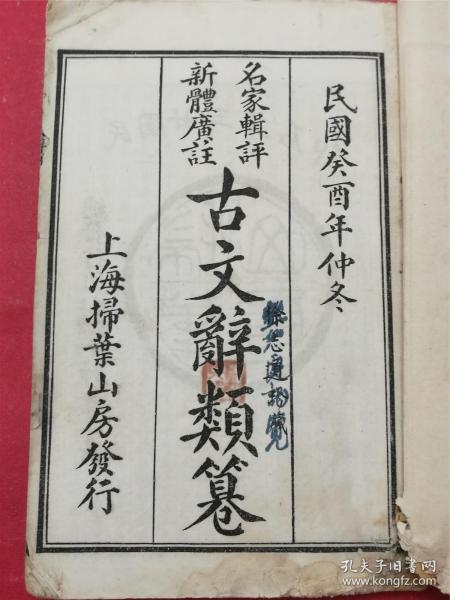 民國癸酉年仲冬
名家輯評
新體廣註
古文辭類篹
上海掃葉山房發行
孔夫子旧书网
www.kongfz.com